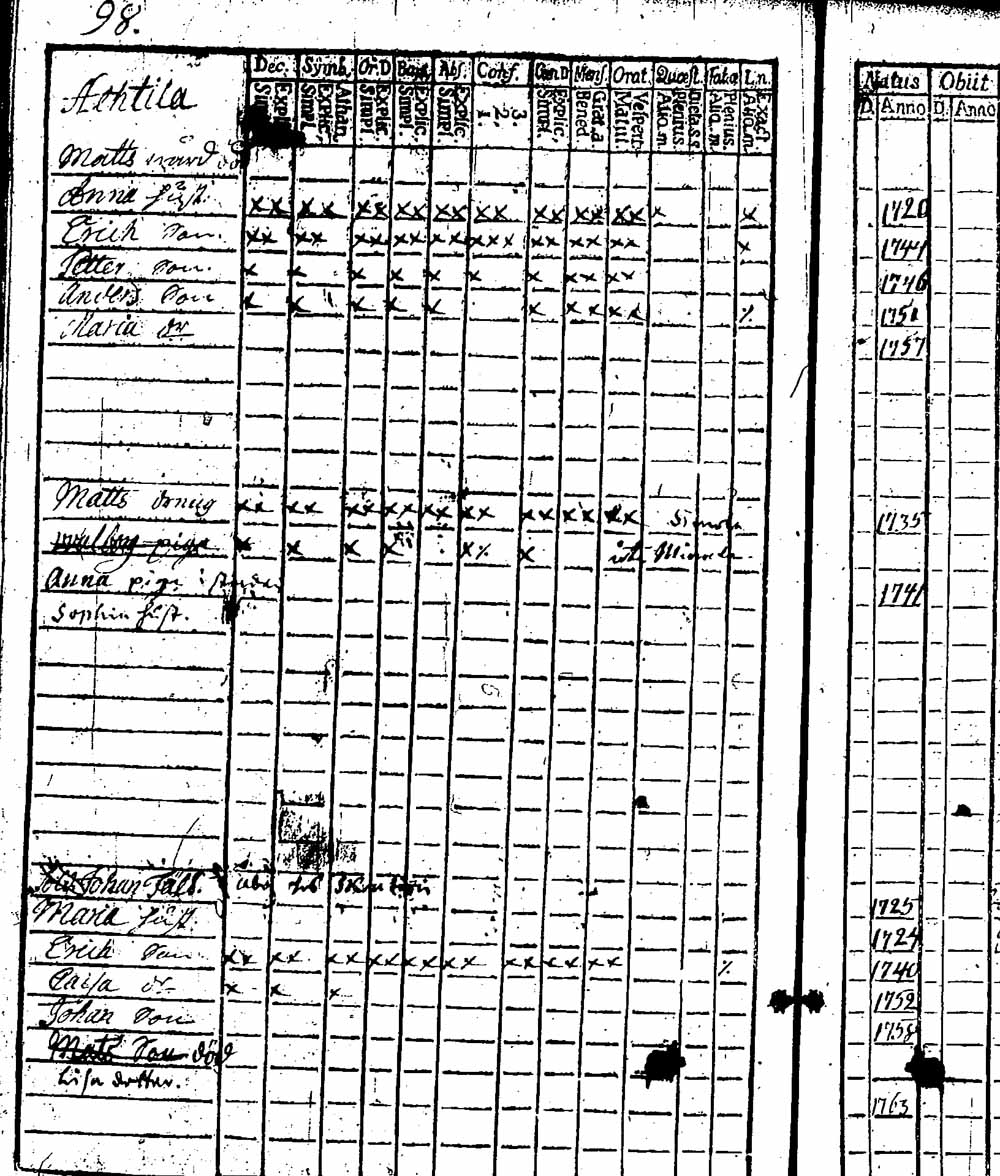 98.
Dec. Symb. Or.D Bapt. Abs. Conf. Cœn.D Mens. Orat. Quæst. Tab.œ L.n. Natus Obiit
Ahtila Simpl. Explic. Simpl. Explic. Athan. Simpl. Explic. Simpl. Explic. Simpl. Explic. 1. 2. 3. Simpl. Explic. Bened. Grat.a. Matut. Vespert. Aliq.m Plenius. Dicta s.s. Aliq.m Plenius. Aliq.m Exact. D. Anno D. Anno
Matts
Anna hust. xx xx xx xx xx xx xx xx xx x x 1720
Erich Son. xx xx xx xx xx xxx xx xx xx x 1744
Petter Son. x x x x x x x xx xx 1746
Anders Son x x x x x x xx xx ⁒ 1751
Maria dr 1757
Matts xx xx xx xx xx xx xx xx xx 1735
pige x x x x x⁒ x
Anna pige 1741
Sophia hust.
Johan 1725
Maria hust. 1724
Erich Son xx xx xx xx xx xx xx xx ⁒ 1740
Caisa dr x x x 1752
Johan Son 1758
Mats Son död
Lisa dotter. 1763